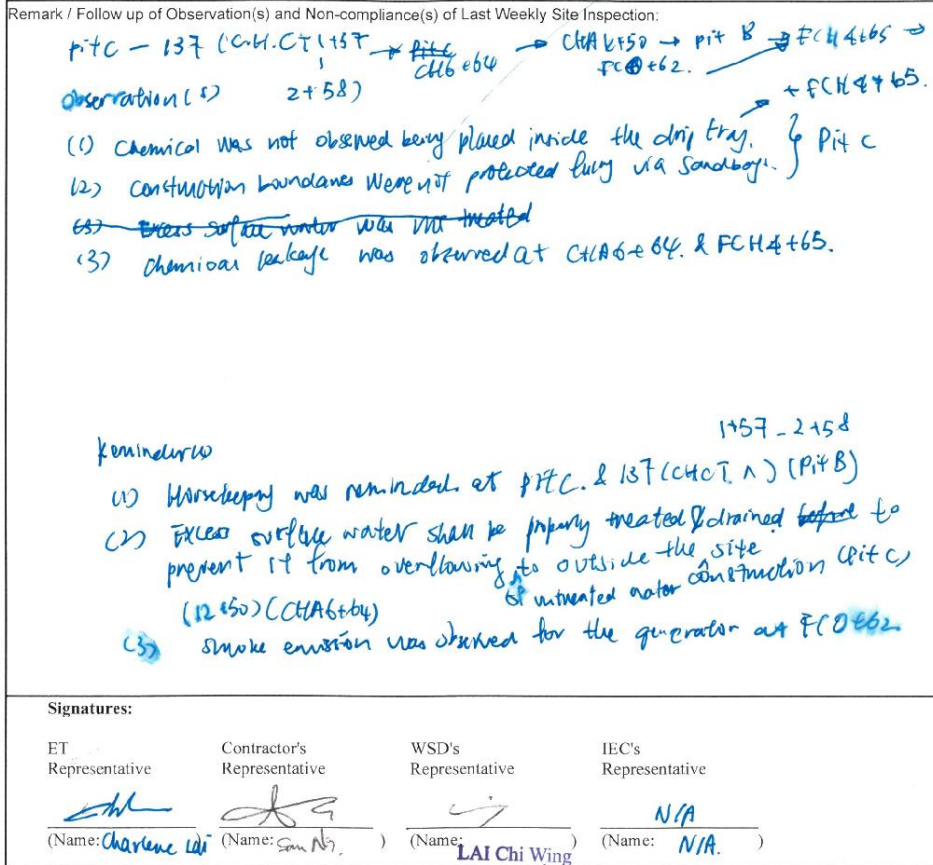 Remark / Follow up of Observation(s) and Non-compliance(s) of Last Weekly Site Inspection:
pit C - 137 (C.H.CT 1+57 → CH6+64 → CHA +50 → pit B → FCH4+65 →
2+58) FC0+62. + FCH4+65.
Observation(s)
(1) Chemical was not observed being placed inside the drip tray. } Pit C
(2) construction boundaries were not protected fully via sandbags.
(3) Excess surface water was not treated
(3) chemical leakage was observed at CHA6+64. & FCH4+65.
1+57 - 2+58
Reminder(s)
(1) Housekeeping was reminded at pit C. & 137 (CHCT. ^) (Pit B)
(2) Excess surface water shall be properly treated & drained before to
prevent it from overflowing to outside the site
of untreated water construction (Pit C)
(12+50) (CHA6+64)
(3) smoke emission was observed for the generator at FC0+62
Signatures:
ET Representative
Contractor's Representative
WSD's Representative
IEC's Representative
N/A
(Name: Charlene Lai (Name: Sam Ng. ) (Name: LAI Chi Wing ) (Name: N/A. )